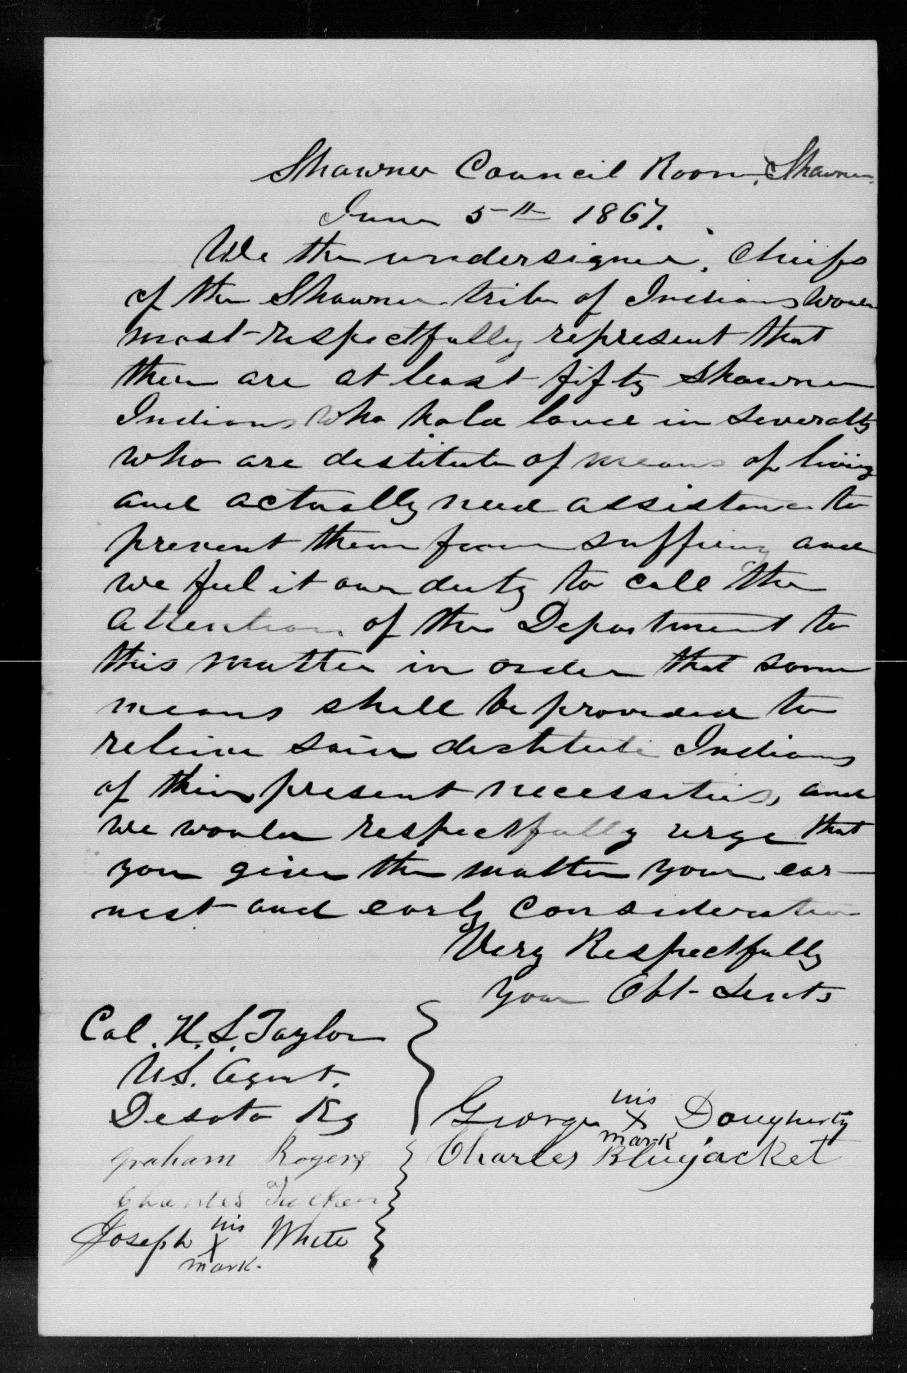 Shawnee Council Room, Shawnee
June 5th 1867.
We the undersigned, Chiefs
of the Shawnee tribe of Indians would
most respectfully represent that
there are at least fifty Shawnee
Indians who hold land in severalty
who are destitute of means of living
and actually need assistance to
prevent them from suffring and
we feel it our duty to call the
attention of the Department to
this matter in order that some
means shall be provided to
relieve said destitute Indians
of their present necessities, and
we would respectfully urge that
you give the matter your ear-
nest and early consideration
Very Respectfully
Your Obt Servts
Col. H. L. Taylor
U.S. Agent.
Desoto Ks
George his X mark Dougherty
Charles Bluejacket
Graham Rogers
Charles Tucker
Joseph his X mark. White